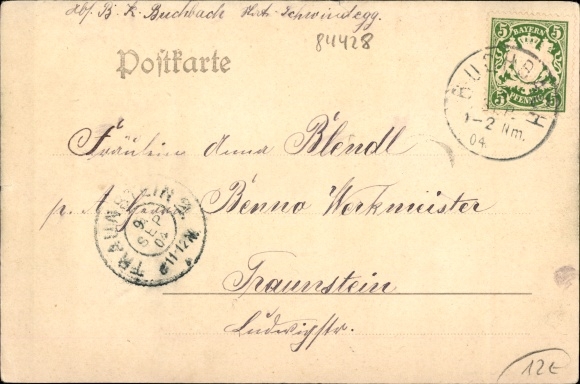 Abs. B. K. Buchbach Post Schwindegg.
84428
Postkarte
BAYERN
5 5
5 5
PFENNIG
BUCHBACH
SEP.
1-2 Nm.
04.
Fräulein Anna Blondl
p. A. Herrn Benno Werkmeister
TRAUNSTEIN
9
SEP
04
11-12 N.
Traunstein
Ludwigstr.
12€